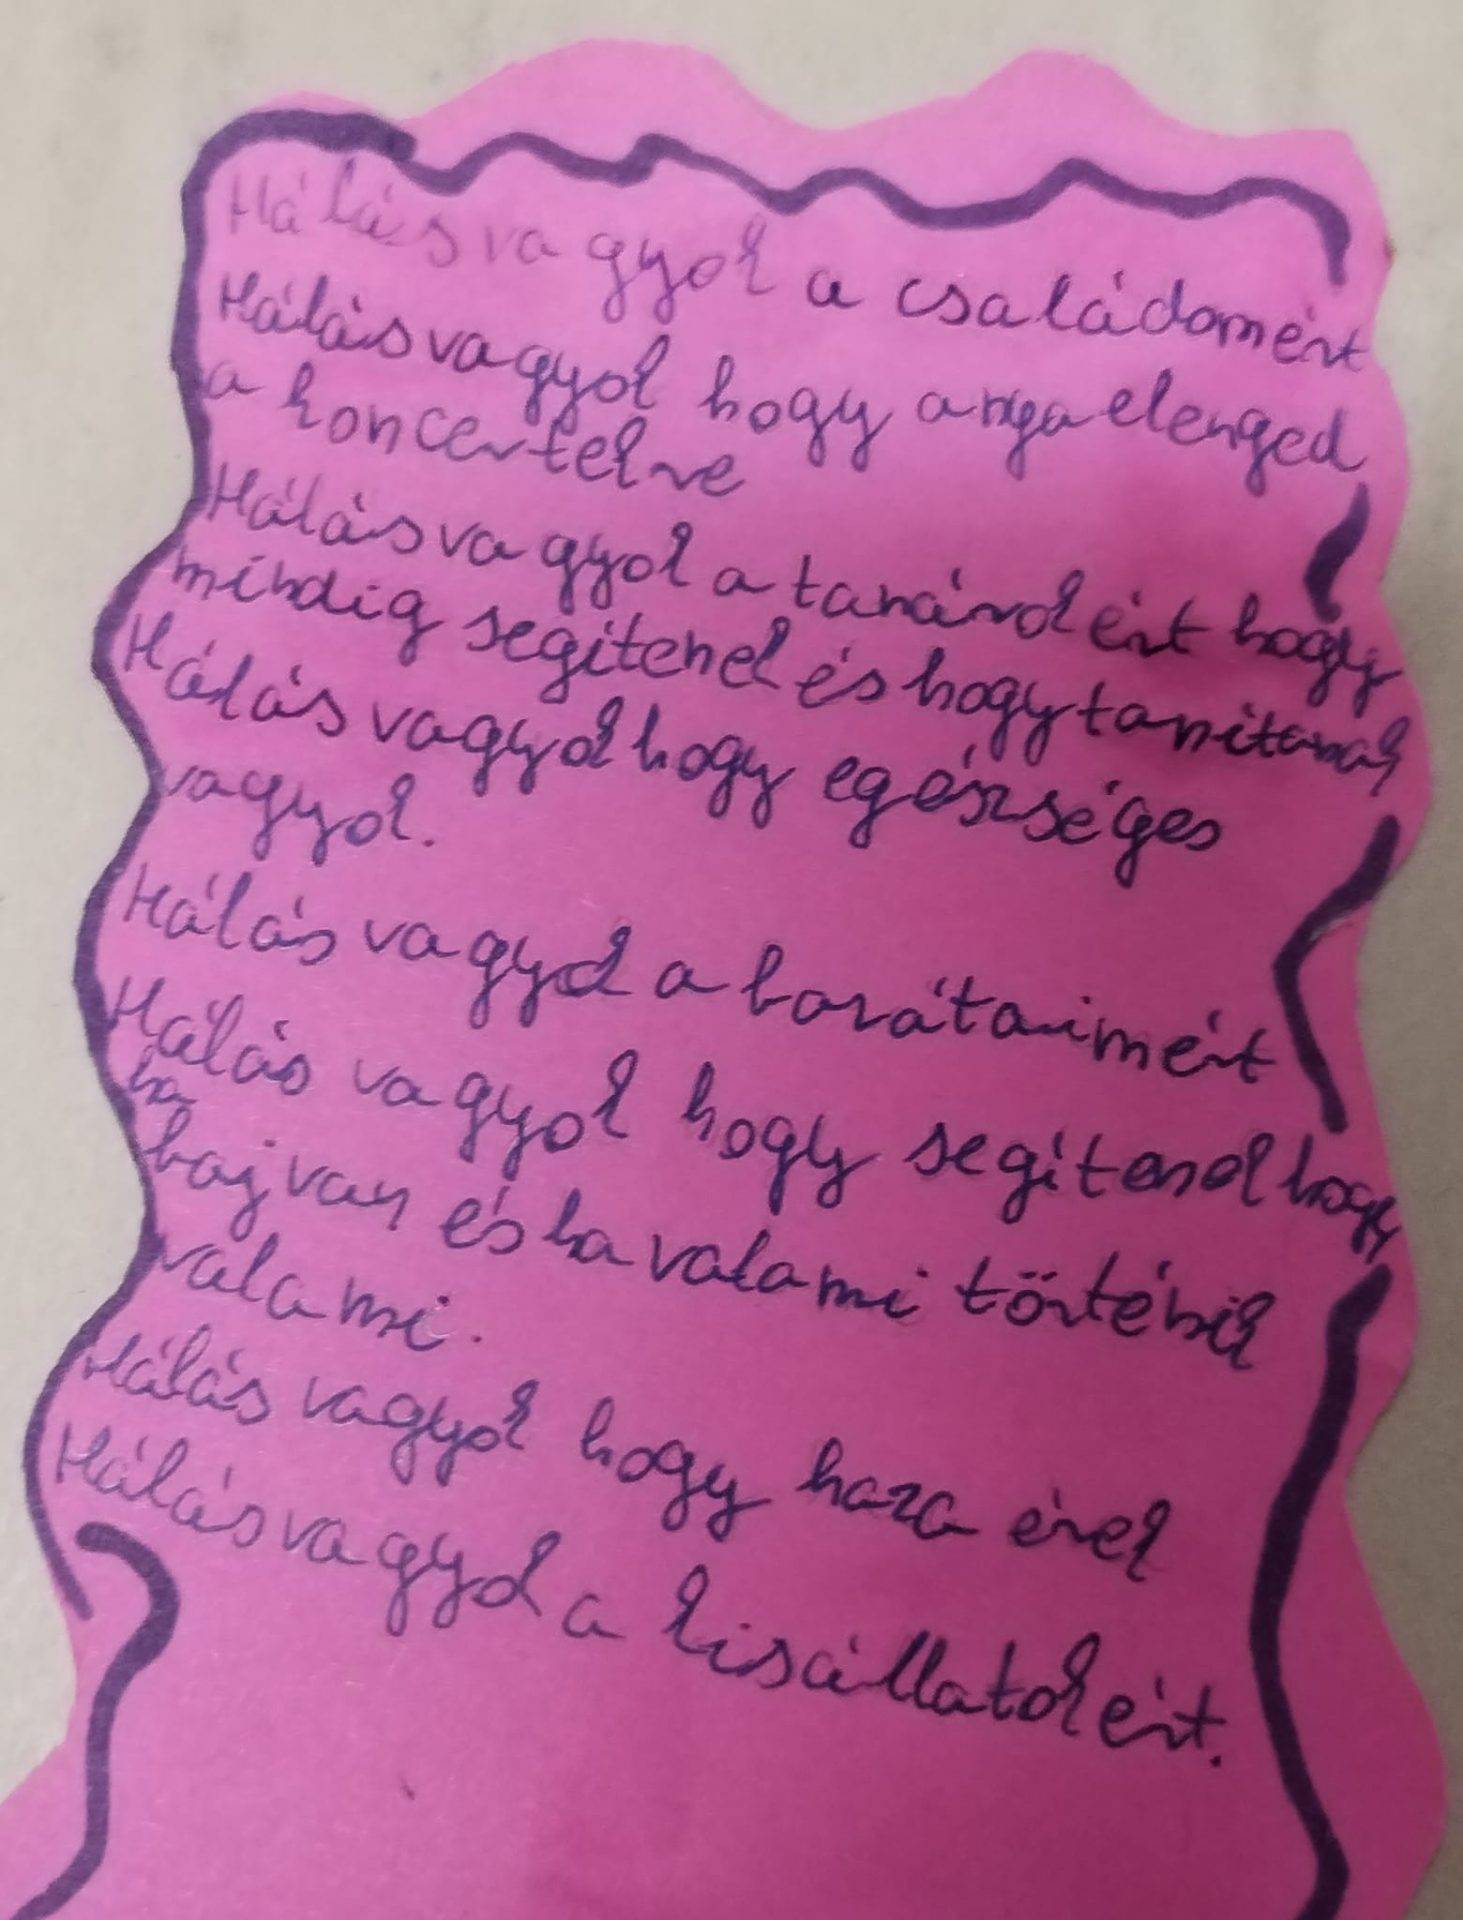 Hálás vagyok a családomért
Hálás vagyok hogy anya elenged
a koncertekre
Hálás vagyok a tanárokért hogy
mindig segítenek és hogy tanítanak
Hálás vagyok hogy egészséges
vagyok.
Hálás vagyok a barátaimért
Hálás vagyok hogy segítenek hogy
ha
baj van és ha valami történik
valami.
Hálás vagyok hogy haza érek
Hálás vagyok a kisállatokért.